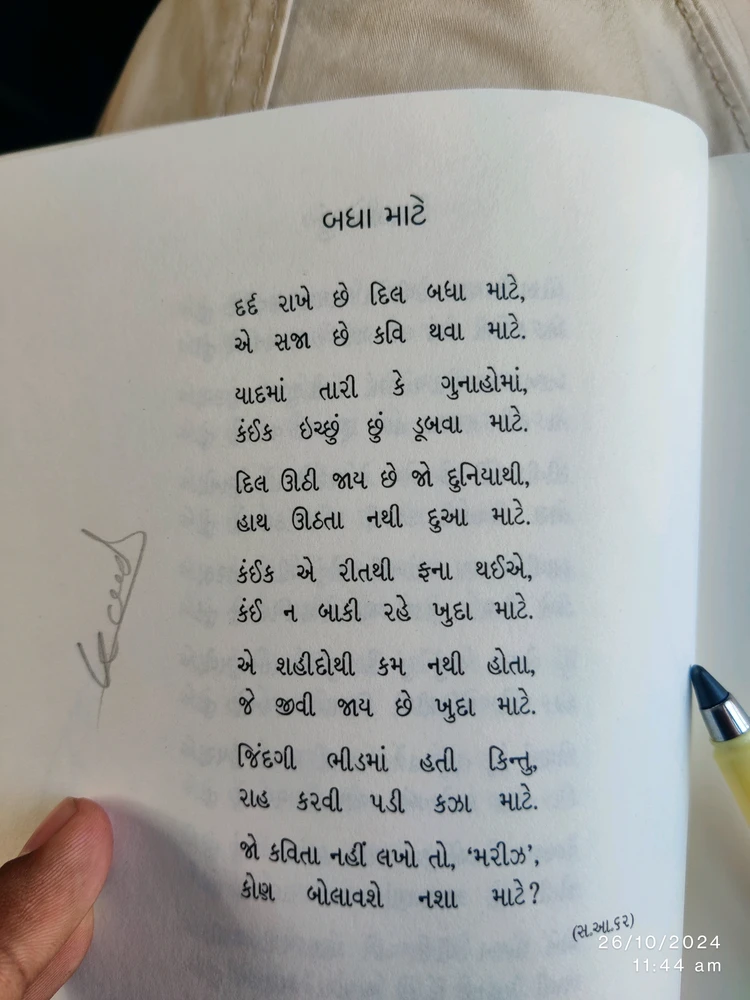 બધા માટે
દર્દ રાખે છે દિલ બધા માટે,
એ સજા છે કવિ થવા માટે.
યાદમાં તારી કે ગુનાહોમાં,
કંઈક ઇચ્છું છું ડૂબવા માટે.
દિલ ઊઠી જાય છે જો દુનિયાથી,
હાથ ઊઠતા નથી દુઆ માટે.
કંઈક એ રીતથી ફના થઈએ,
કંઈ ન બાકી રહે ખુદા માટે.
એ શહીદોથી કમ નથી હોતા,
જે જીવી જાય છે ખુદા માટે.
જિંદગી ભીડમાં હતી કિન્તુ,
રાહ કરવી પડી કઝા માટે.
જો કવિતા નહીં લખો તો, ‘મરીઝ’,
કોણ બોલાવશે નશા માટે?
(સ.આ.કર)
26/10/2024
11:44 am